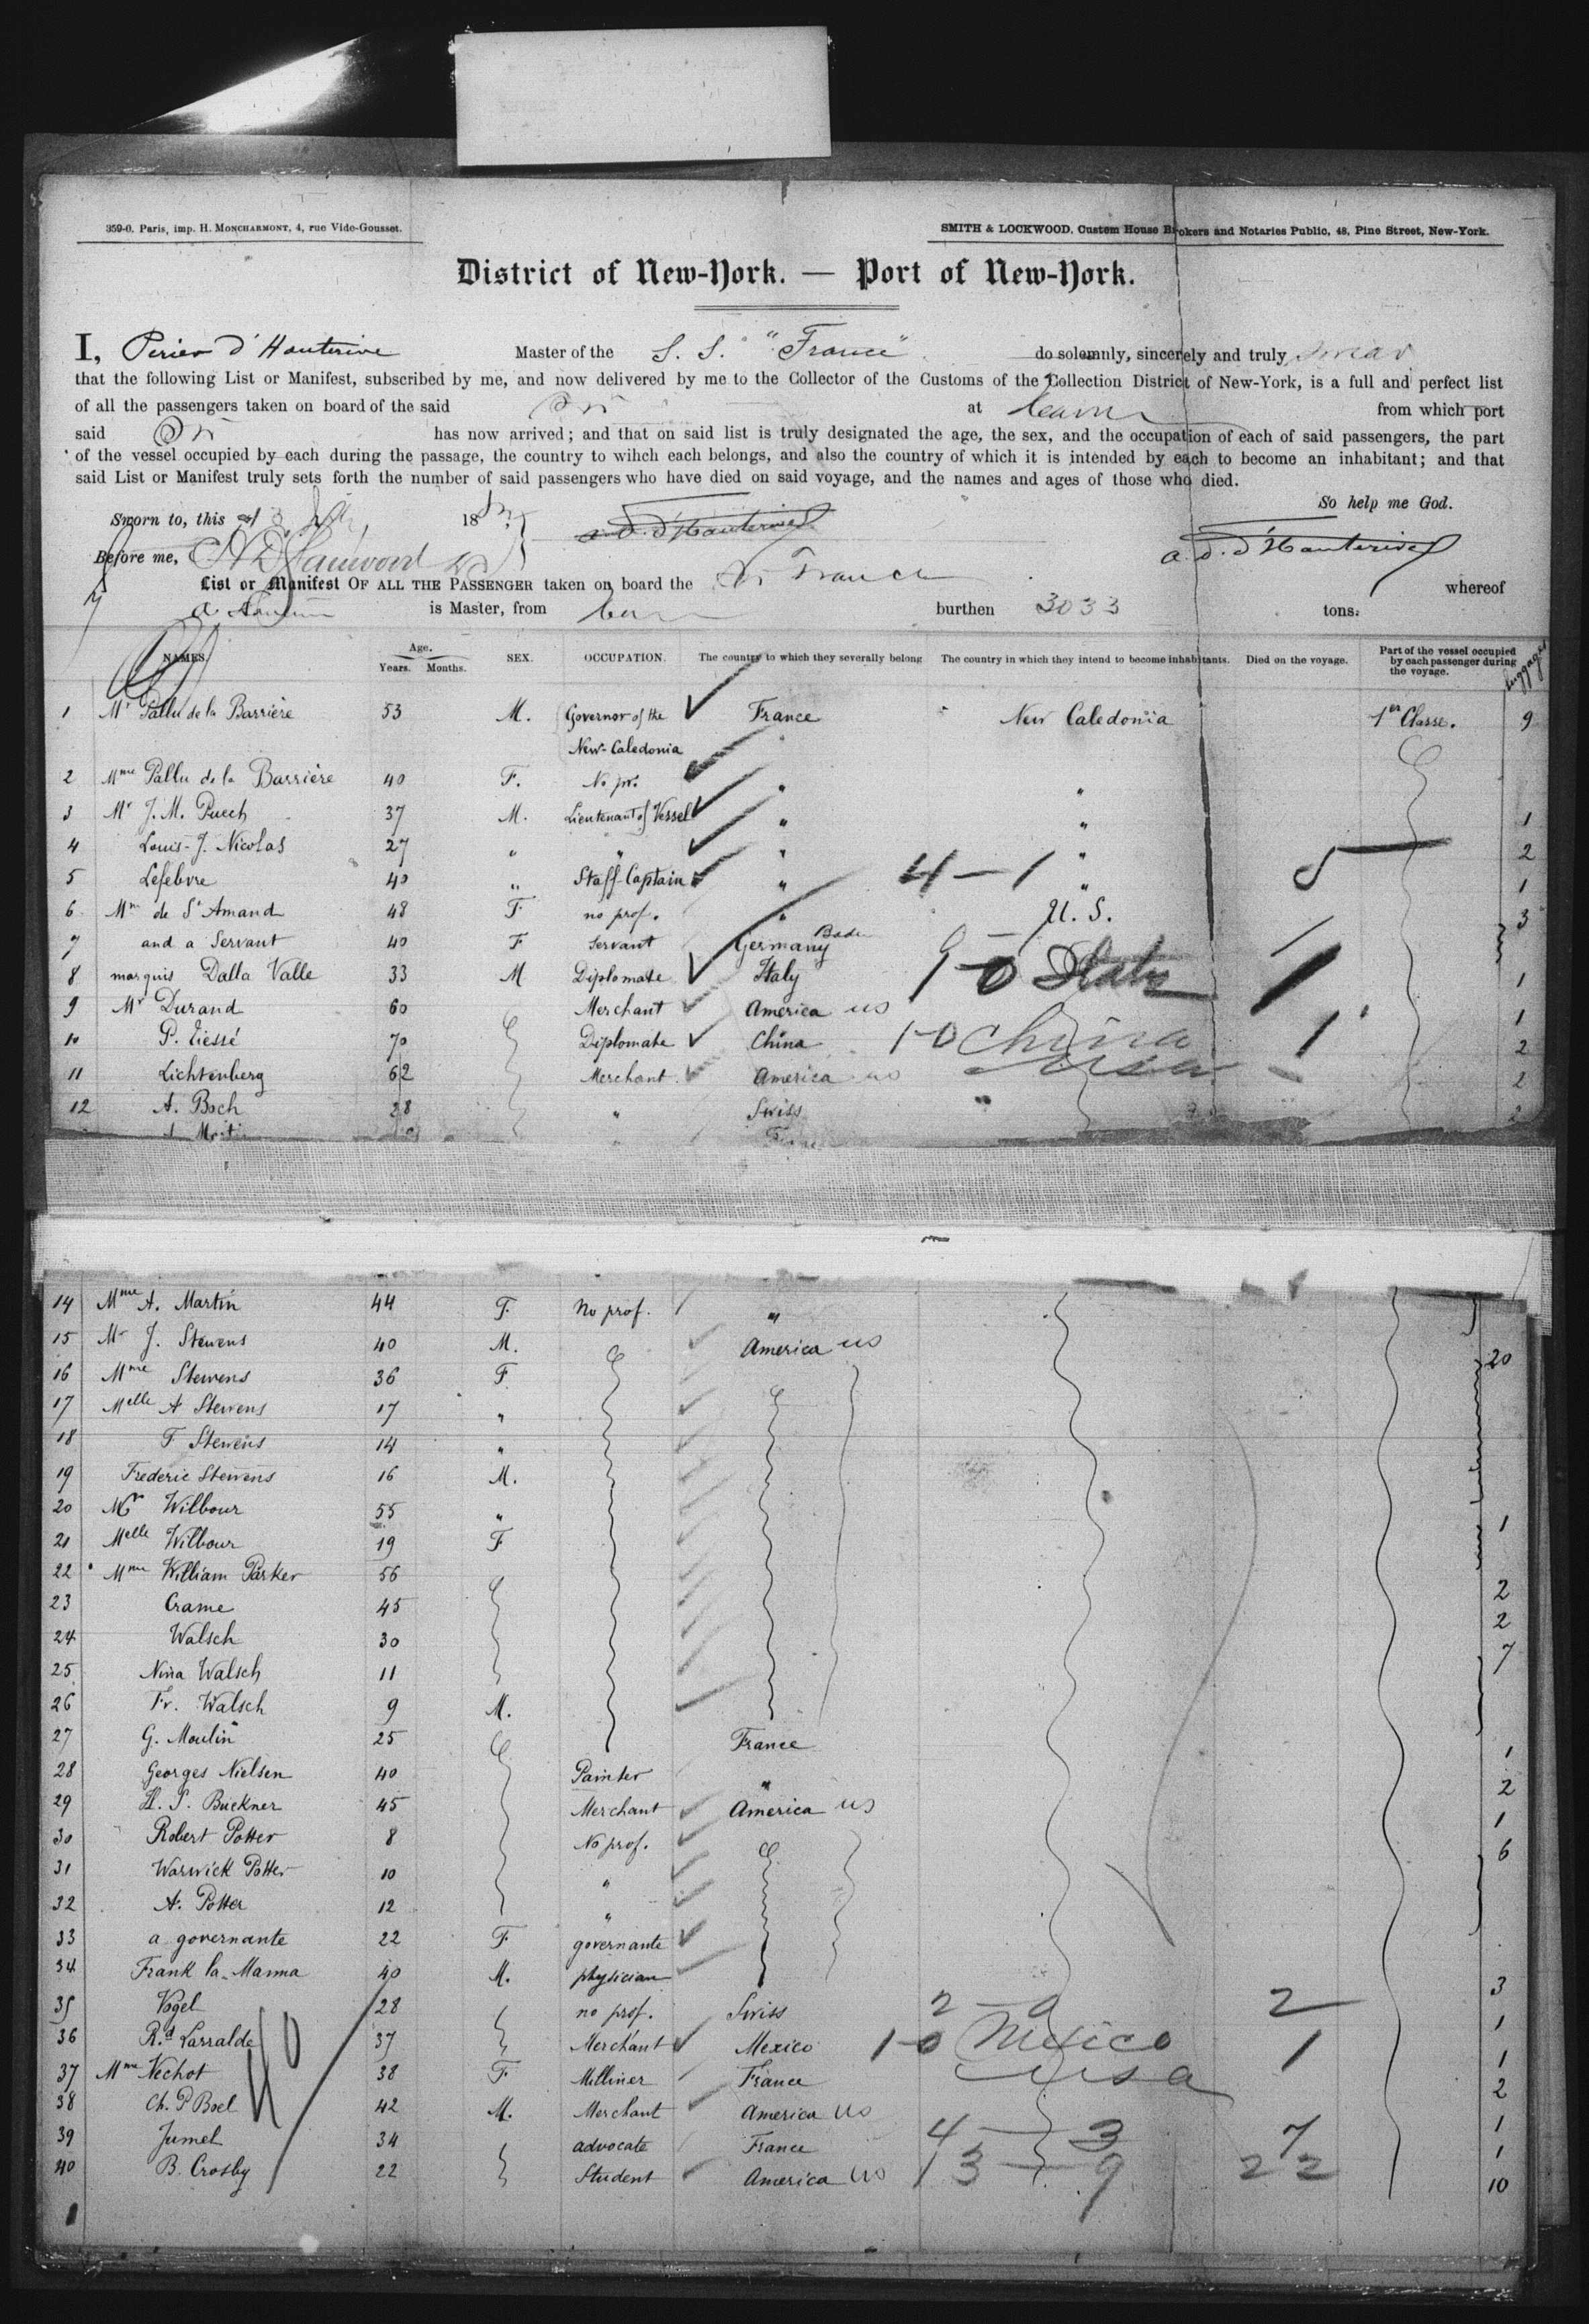 359-0. Paris, imp. H. MONCHARMONT, 4, rue Vide-Gousset.
SMITH & LOCKWOOD. Custom House Brokers and Notaries Public, 48, Pine Street, New-York.
District of New-York. — Port of New-York.
I, Perier d'Hauterive Master of the S. S. "France" do solemnly, sincerely and truly swear
that the following List or Manifest, subscribed by me, and now delivered by me to the Collector of the Customs of the Collection District of New-York, is a full and perfect list
of all the passengers taken on board of the said at from which port
said has now arrived; and that on said list is truly designated the age, the sex, and the occupation of each of said passengers, the part
of the vessel occupied by each during the passage, the country to wihch each belongs, and also the country of which it is intended by each to become an inhabitant; and that
said List or Manifest truly sets forth the number of said passengers who have died on said voyage, and the names and ages of those who died.
So help me God.
Sworn to, this 18
a. d. d'Hauterive
a. d. d'Hauterive
Before me,
List or Manifest OF ALL THE PASSENGER taken on board the France whereof
is Master, from burthen 3033 tons.
NAMES. Age. Years. Months. SEX. OCCUPATION. The country to which they severally belong The country in which they intend to become inhabitants. Died on the voyage. Part of the vessel occupied by each passenger during the voyage. luggages
1 Mr Pallu de la Barrière 53 M. Governor of the France New Caledonia 1er Classe. 9
New-Caledonia
2 Mme Pallu de la Barrière 40 F. No pr. " "
3 Mr J. M. Puech 37 M. Lieutenant of Vessel " " 1
4 Louis-J. Nicolas 27 " " " " 2
5 Lefebvre 40 " Staff-Captain " 4-1 " 5 1
6 Mme de St Amand 48 F no prof. " U. S. 3
7 and a Servant 40 F Servant Germany Baden
8 marquis Dalla Valle 33 M Diplomate Italy 1-0 Italy 1 1
9 Mr Durand 60 Merchant America US 1
10 P. Tiessé 70 Diplomate China 1-0 China 1 2
11 Lichtenberg 62 Merchant America us USA 2
12 A. Boch 28 " Swiss 2
14 Mme A. Martin 44 F. No prof. "
15 Mr J. Stevens 40 M. America US 20
16 Mme Stevens 36 F
17 Melle A Stevens 17 "
18 F Stevens 14 "
19 Frederic Stevens 16 M.
20 Mr Wilbour 55 " 1
21 Melle Wilbour 19 F
22 Mme William Parker 56 2
23 Crame 45 2
24 Walsch 30 7
25 Nina Walsch 11
26 Fr. Walsch 9 M.
27 G. Moulin 25 France 1
28 Georges Nielsen 40 Painter " 2
29 H. S. Buckner 45 Merchant America US 1
30 Robert Potter 8 No prof. 6
31 Warwick Potter 10 "
32 A. Potter 12 "
33 a governante 22 F governante
34 Frank la-Manna 40 M. physician 3
35 Vogel 28 no prof. Swiss 2-0 2 1
36 Rd Larralde 37 Merchant Mexico 1-0 Mexico 1 1
37 Mme Vechot 38 F Milliner France USA 2
38 Ch. P Boel 42 M. Merchant America US 1
39 Jumel 34 advocate France 4-3 7 1
40 B. Crosby 22 Student America US 13-9 22 10
40